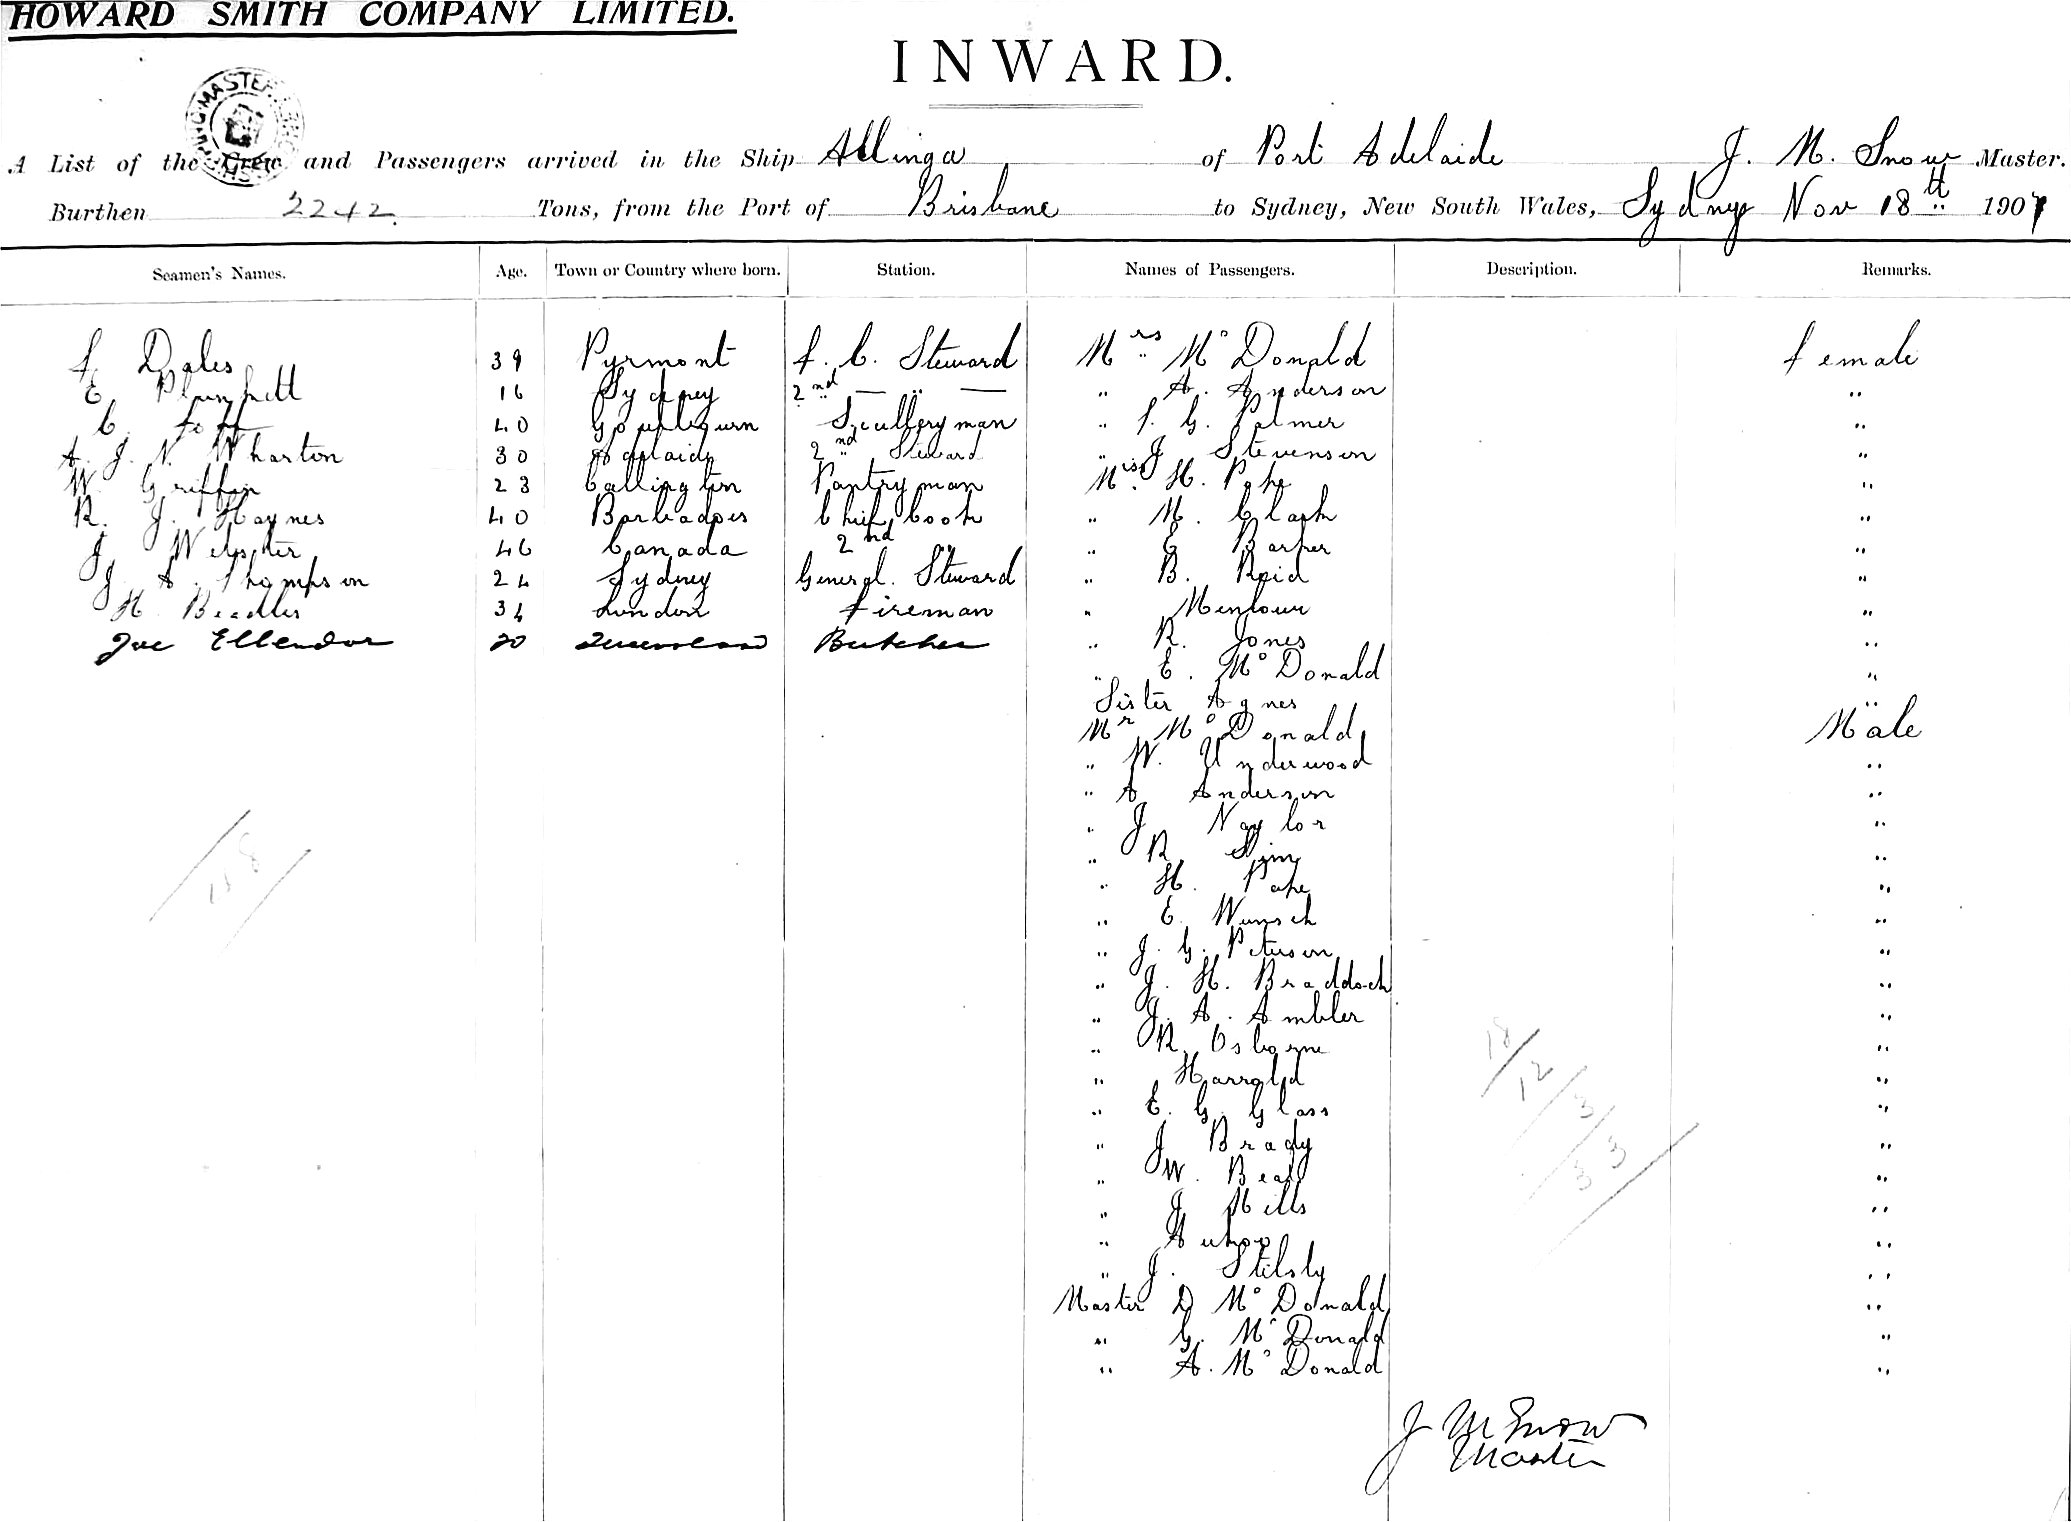 HOWARD SMITH COMPANY LIMITED.
INWARD.
A List of the Crew and Passengers arrived in the Ship Allinga of Port Adelaide J. M. Snow Master.
Burthen 2242 Tons, from the Port of Brisbane to Sydney, New South Wales, Sydney Nov 18th 1907
Seamen's Names. Age. Town or Country where born. Station. Names of Passengers. Description. Remarks.
f Dales 39 Pyrmont f. C. Steward Mrs Mc Donald female
E. Plunkett 16 Sydney 2nd — " — " A. Anderson "
C. 40 Goulburn Sculleryman " G. Palmer "
A. J. N. Wharton 30 Adelaide 2nd Steward " J Stevenson "
W. Griffin 23 Callington Pantryman Miss H. Pope "
R. J. Haynes 40 Barbadoes Chief Cook " M. Clark "
J Webster 46 Canada 2nd " " E Barker "
J. A. Thompson 24 Sydney General. Steward " B. Reid "
H. Beadles 34 London fireman " "
Joe Ellendor 20 Queensland Butcher " R. Jones "
" E. Mc Donald "
Sister Agnes "
Mr Mc Donald Male
" W. Underwood "
" A Anderson "
" J Naylor "
" R. Sim "
" H. Pope "
" E. Wunsch "
" J. G. Peterson "
" J. H. Braddock "
" J. A. Ambler "
" R. Osborne "
" Harrold "
" E. G. Glass "
" J Brady "
" W. "
" J Mills "
" "
" J. "
Master D Mc Donald "
" G. Mc Donald "
" A. Mc Donald "
18/12/3/33
J M Snow
Master